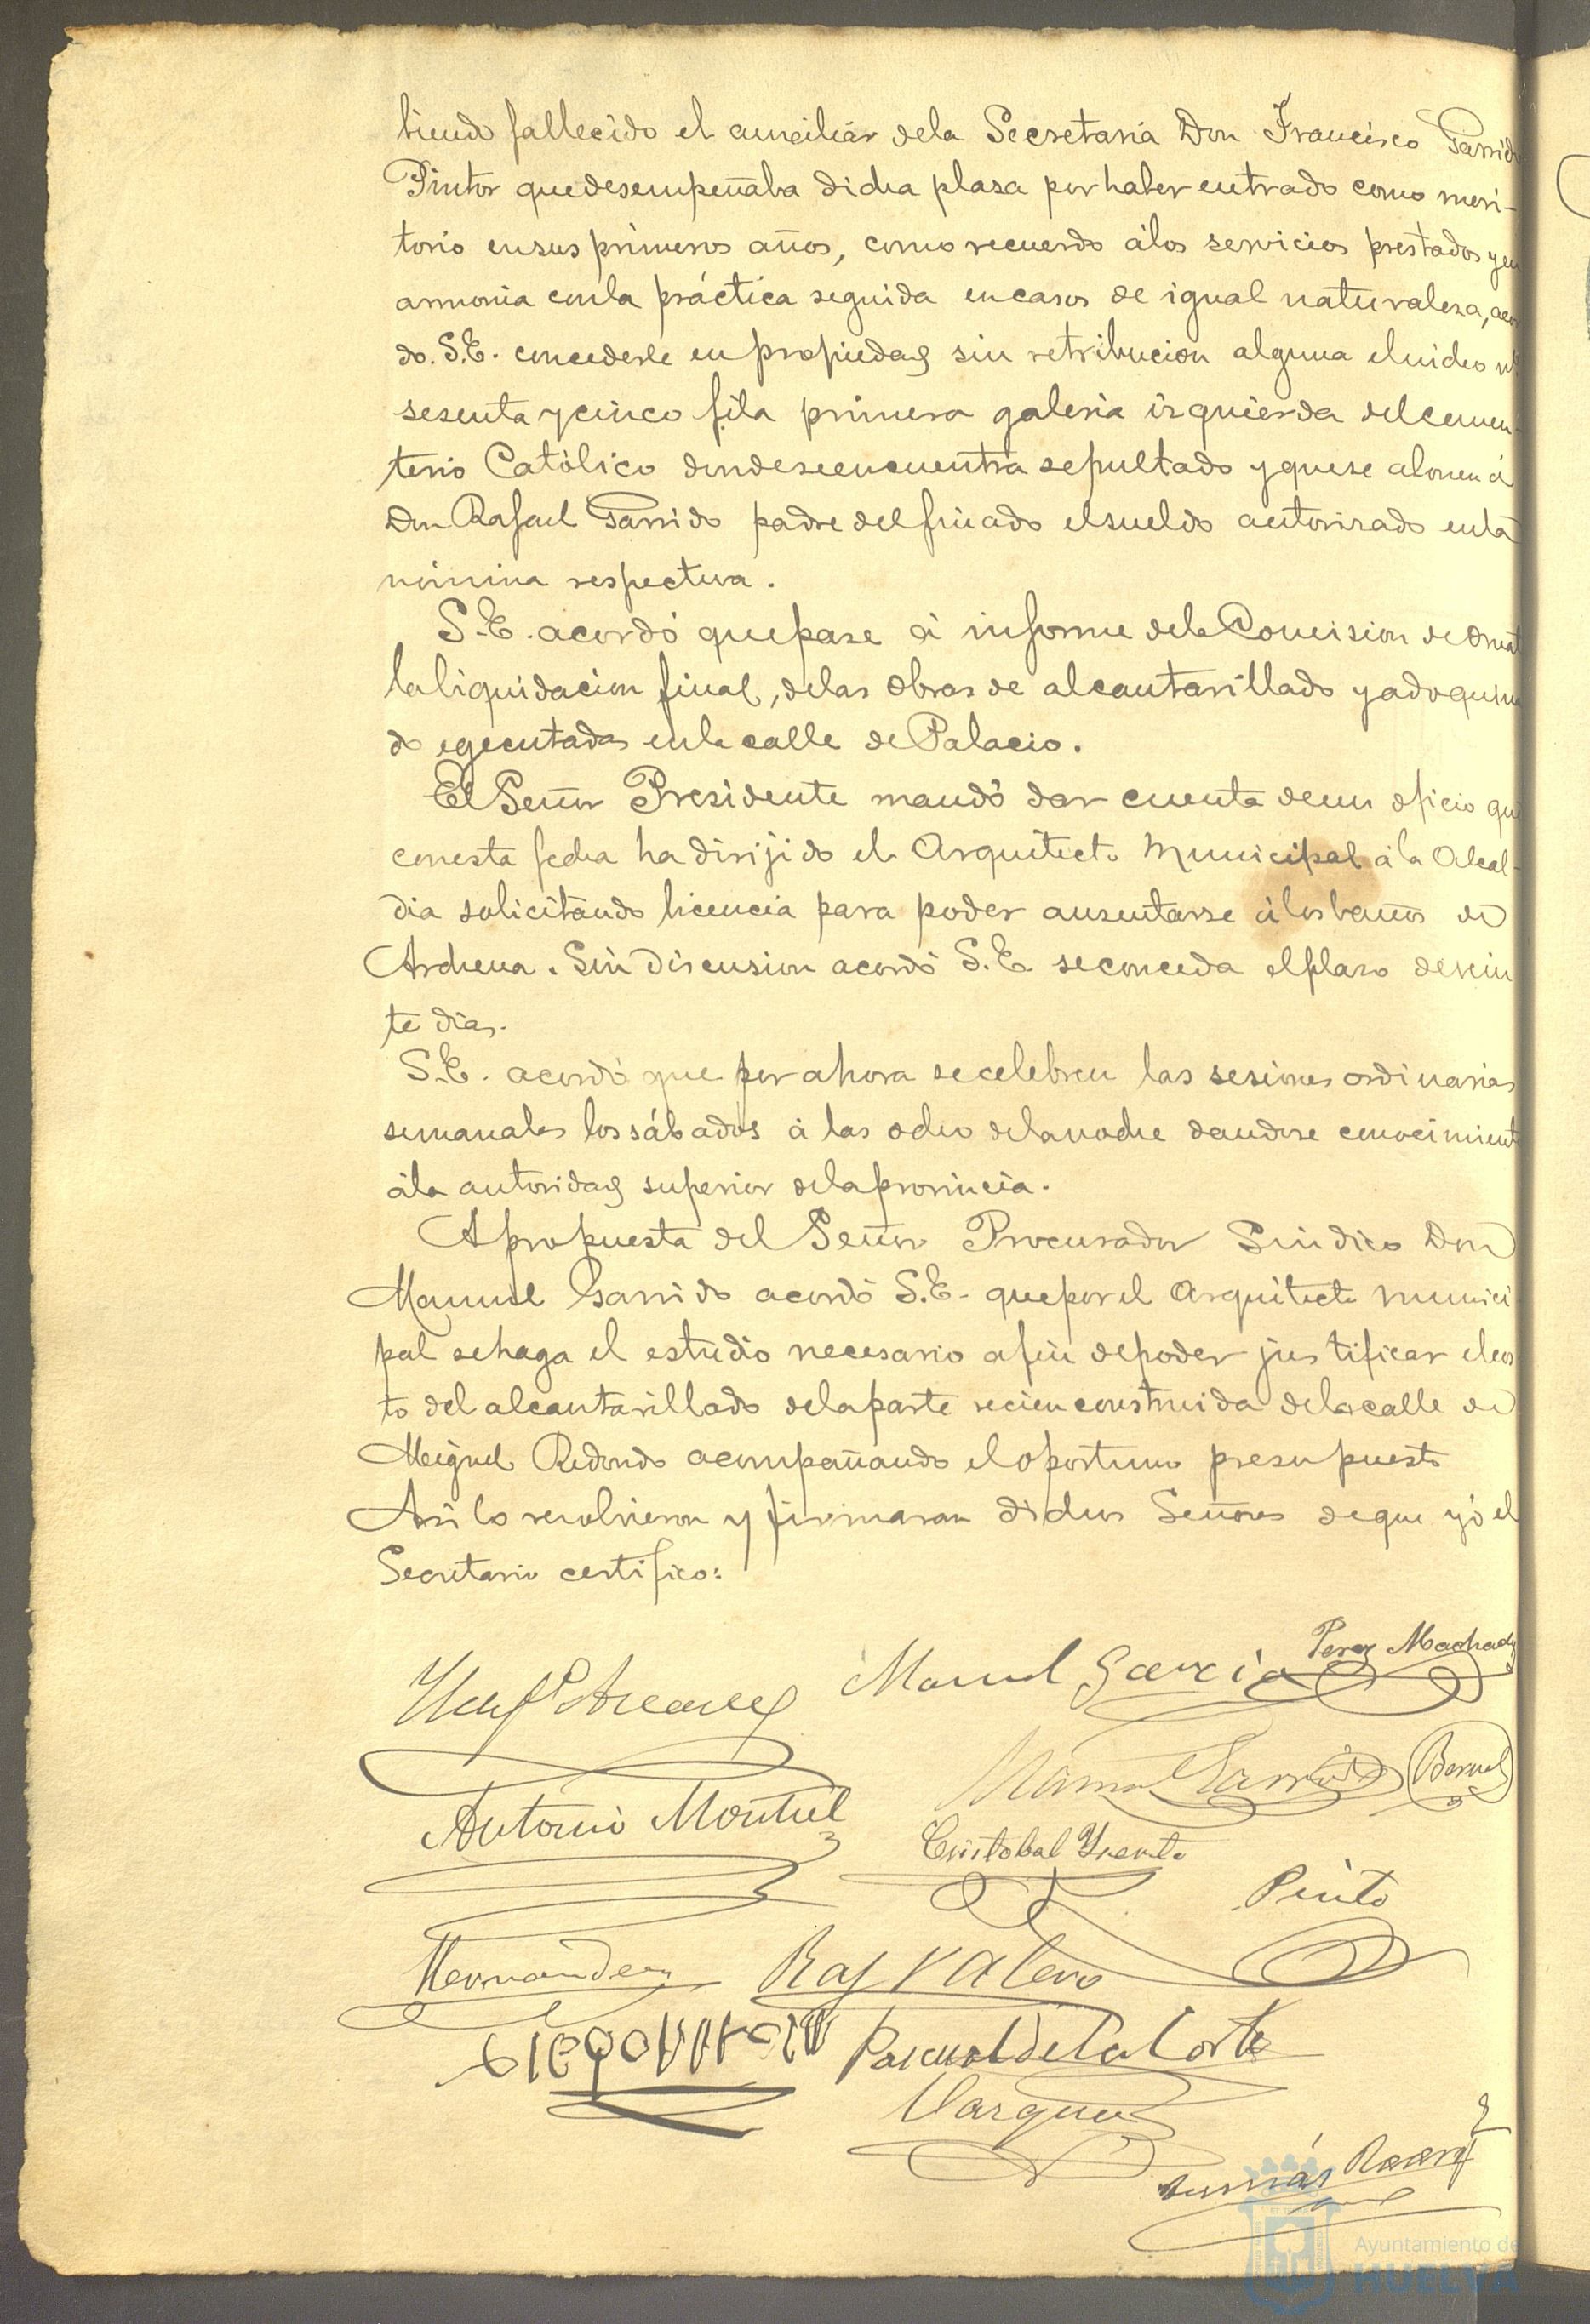 biendo fallecido el auxiliar dela Secretaria Don Francisco Garrido
Pintor que desempeñaba dicha plasa por haber entrado como meri-
torio en sus primeros años, como recuerdo álos servicios prestados y en
armonia con la práctica seguida en casos de igual naturalesa, acor
do. S.E. concederle en propiedad sin retribucion alguna el nicho nº
sesenta y cinco fila primera galeria izquierda del cemen-
terio Católico donde se encuentra sepultado y que se abonen á
Don Rafael Garrido padre del finado el sueldo autorizado en la
nómina respectiva.
S.E. acordó que pase á informe dela Comision de Ornat
la liquidacion final, delas obras de alcantarillado y adoquina
do egecutadas en la calle de Palacio.
El Señor Presidente mandó dar cuenta de un oficio que
con esta fecha ha dirijido el Arquitecto Municipal á la Alcal-
dia solicitando licencia para poder ausentarse á los baños de
Archena. Sin discusion acordó S.E. se conceda el plazo de vein
te dias.
S.E. acordó que por ahora se celebren las sesiones ordinarias
semanales los sábados á las ocho dela noche dandose conocimiento
ála autoridad superior dela provincia.
A propuesta del Señor Procurador Sindico Don
Manuel Garrido acordó S.E. que por el Arquitecto munici
pal se haga el estudio necesario a fin de poder justificar el cos
to del alcantarillado dela parte recien construida dela calle de
Miguel Redondo acompañando el oportuno presupuesto
Asi lo resolvieron y firmaran dichos Señores de que yó el
Secretario certifico:
Manuel Garcia Perez Machado
Manuel Garrido Bernal
Antonio Montiel
Cristobal
Pinto
Hernandez Raf Valero
Pascual de la Corte
Vazquez
Tomás
Ayuntamiento de
HUELVA